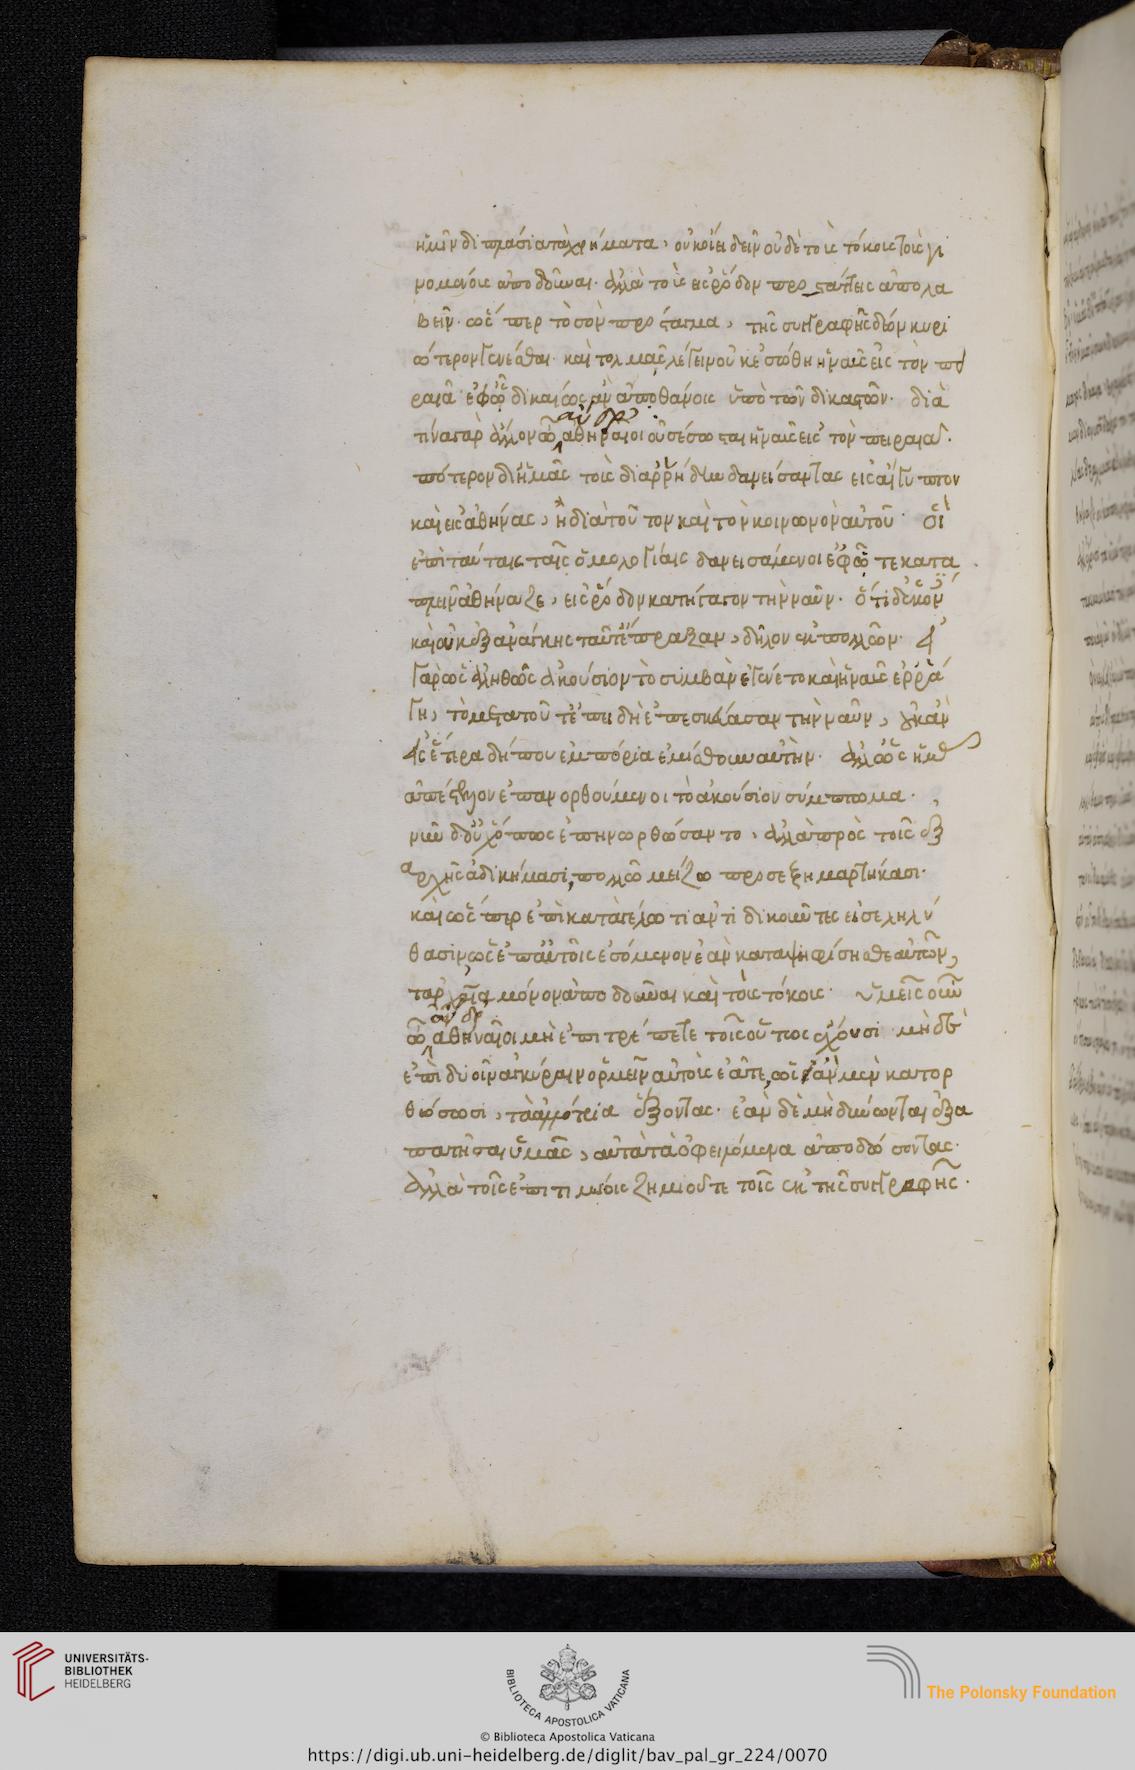 ἡμῖν διπλάσια τὰ χρήματα, οὐκ οἴει δεῖν οὐδὲ τοὺς τόκους τοὺς γι
νομένους ἀποδοῦναι. ἀλλὰ τοὺς εἰς ῥόδον προστάττεις ἀπολα
βεῖν. ὥσπερ τὸ σὸν πρόσταγμα, τῆς συγγραφῆς δέον κυρι
ώτερον γενέσθαι. καὶ τολμᾷς λέγειν οὐκ ἐσώθη ἡ ναῦς εἰς τὸν πει
ραιᾶ ἐφ' ᾧ δικαίως ἂν ἀποθάνοις ὑπὸ τῶν δικαστῶν. διὰ
ἄνδρ
τίνα γὰρ ἄλλον ὦ ἀθηναῖοι οὐ σέσωσται ἡ ναῦς εἰς τὸν πειραιᾶ.
πότερον δι' ἡμᾶς τοὺς διαρρήδην δανείσαντας εἰς αἴγυπτον
καὶ εἰς ἀθήνας, ἢ διὰ τοῦτον καὶ τὸν κοινωνὸν αὐτοῦ. οἳ
ἐπὶ ταύταις ταῖς ὁμολογίαις δανεισάμενοι ἐφ' ᾧ τε καταπ
λεῖν ἀθήναζε, εἰς ῥόδον κατήγαγον τὴν ναῦν. ὅτι δ' ἑκόντες
καὶ οὐκ ἐξ ἀνάγκης ταῦτ' ἔπραξαν, δῆλον ἐκ πολλῶν. εἰ
γὰρ ὡς ἀληθῶς ἀκούσιον τὸ συμβὰν ἐγένετο καὶ ἡ ναῦς ἐρρά
γη, τὸ μετὰ τοῦτ' ἐπειδὴ ἐπεσκεύασαν τὴν ναῦν, οὐκ ἂν
εἰς ἕτερα δήπου ἐμπόρια ἐμίσθουν αὐτὴν. ἀλλ' ὡς ὑμᾶς
ἀπέστελλον ἐπανορθούμενοι τὸ ἀκούσιον σύμπτωμα.
νῦν δ' οὐχ ὅπως ἐπηνωρθώσαντο, ἀλλὰ πρὸς τοῖς ἐξ
ἀρχῆς ἀδικήμασι, πολλῷ μείζω προσεξημαρτήκασι.
καὶ ὥσπερ ἐπὶ καταγέλωτι ἀντιδικοῦντες εἰσεληλύ
θασιν, ὡς ἐπ' αὐτοῖς ἐσόμενον ἐὰν καταψηφίσησθε αὐτῶν,
τἀρχαῖα μόνον ἀποδοῦναι καὶ τοὺς τόκους. ὑμεῖς οὖν
ἄνδρ
ὦ ἀθηναῖοι μὴ ἐπιτρέπετε τοῖς οὕτως ἔχουσι μὴ δὲ
ἐπὶ δυοῖν ἀγκύραιν ὁρμεῖν αὐτοὺς ἐᾶτε, ὡς ἂν μὲν κατορ
θώσωσι, τὰ ἀλλότρια ἕξοντας. ἐὰν δὲ μὴ δύνωνται ἐξα
πατῆσαι ὑμᾶς, αὐτὰ τὰ ὀφειλόμενα ἀποδώσοντας.
ἀλλὰ τοῖς ἐπιτιμίοις ζημιοῦτε τοῖς ἐκ τῆς συγγραφῆς.
UNIVERSITÄTS-
BIBLIOTHEK
HEIDELBERG
BIBLIOTECA APOSTOLICA VATICANA
The Polonsky Foundation
© Biblioteca Apostolica Vaticana
https://digi.ub.uni-heidelberg.de/diglit/bav_pal_gr_224/0070